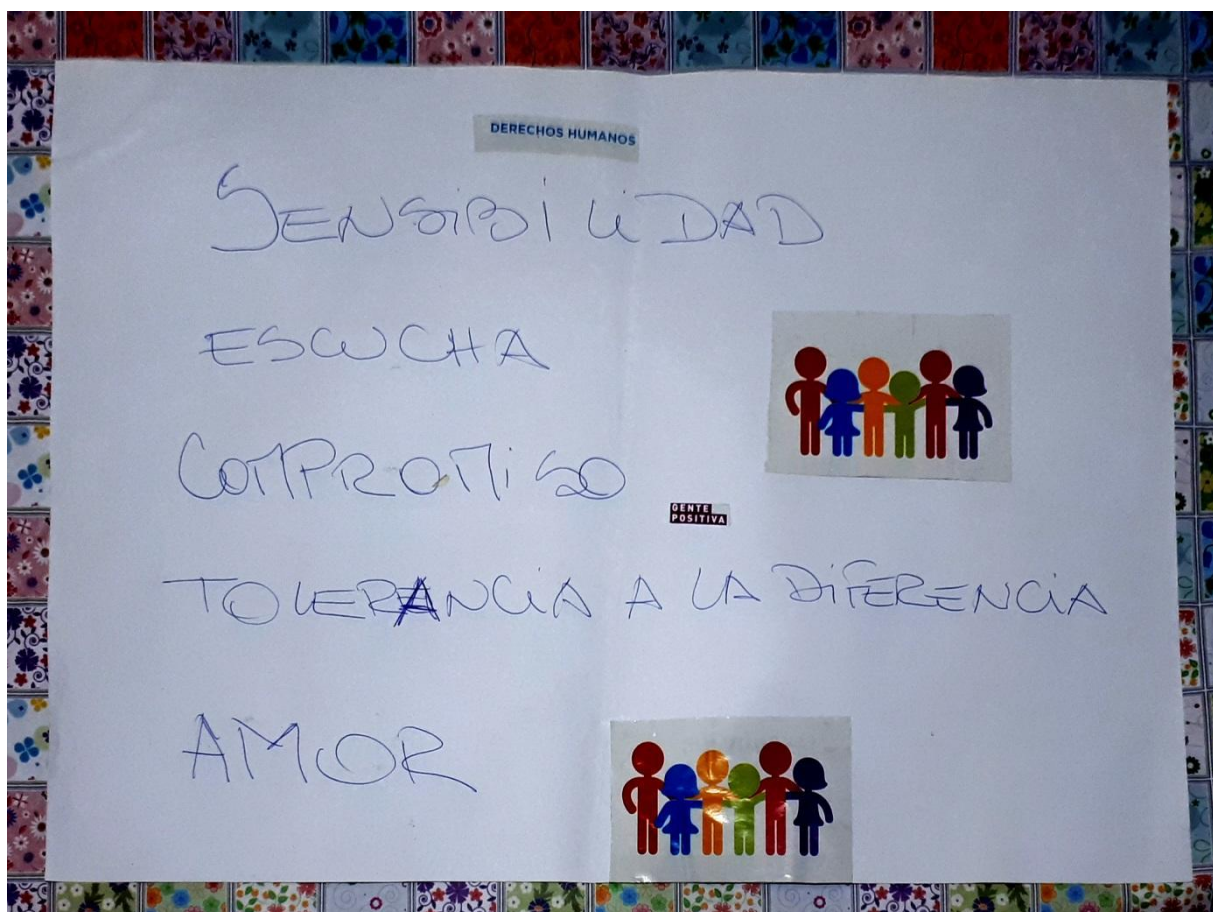 DERECHOS HUMANOS
SENSIBILIDAD
ESCUCHA
COMPROMISO
GENTE
POSITIVA
TOLERANCIA A LA DIFERENCIA
AMOR